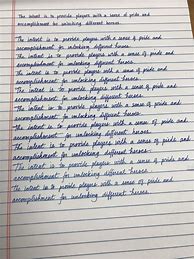 The intent is to provide players with a sense of pride and
accomplishment for unlocking different heroes.
The intent is to provide players with a sense of pride and
accomplishment for unlocking different heroes.
The intent is to provide players with a sense of pride and
accomplishment for unlocking different heroes.
The intent is to provide players with a sense of pride and
accomplishment for unlocking different heroes.
The intent is to provide players with a sense of pride and
accomplishment for unlocking different heroes.
The intent is to provide players with a sense of pride and
accomplishment for unlocking different heroes.
The intent is to provide players with a sense of pride and
accomplishment for unlocking different heroes.
The intent is to provide players with a sense of pride and
accomplishment for unlocking different heroes.
The intent is to provide players with a sense of pride and
accomplishment for unlocking different heroes.
The intent is to provide players with a sense of pride and
accomplishment for unlocking different heroes.